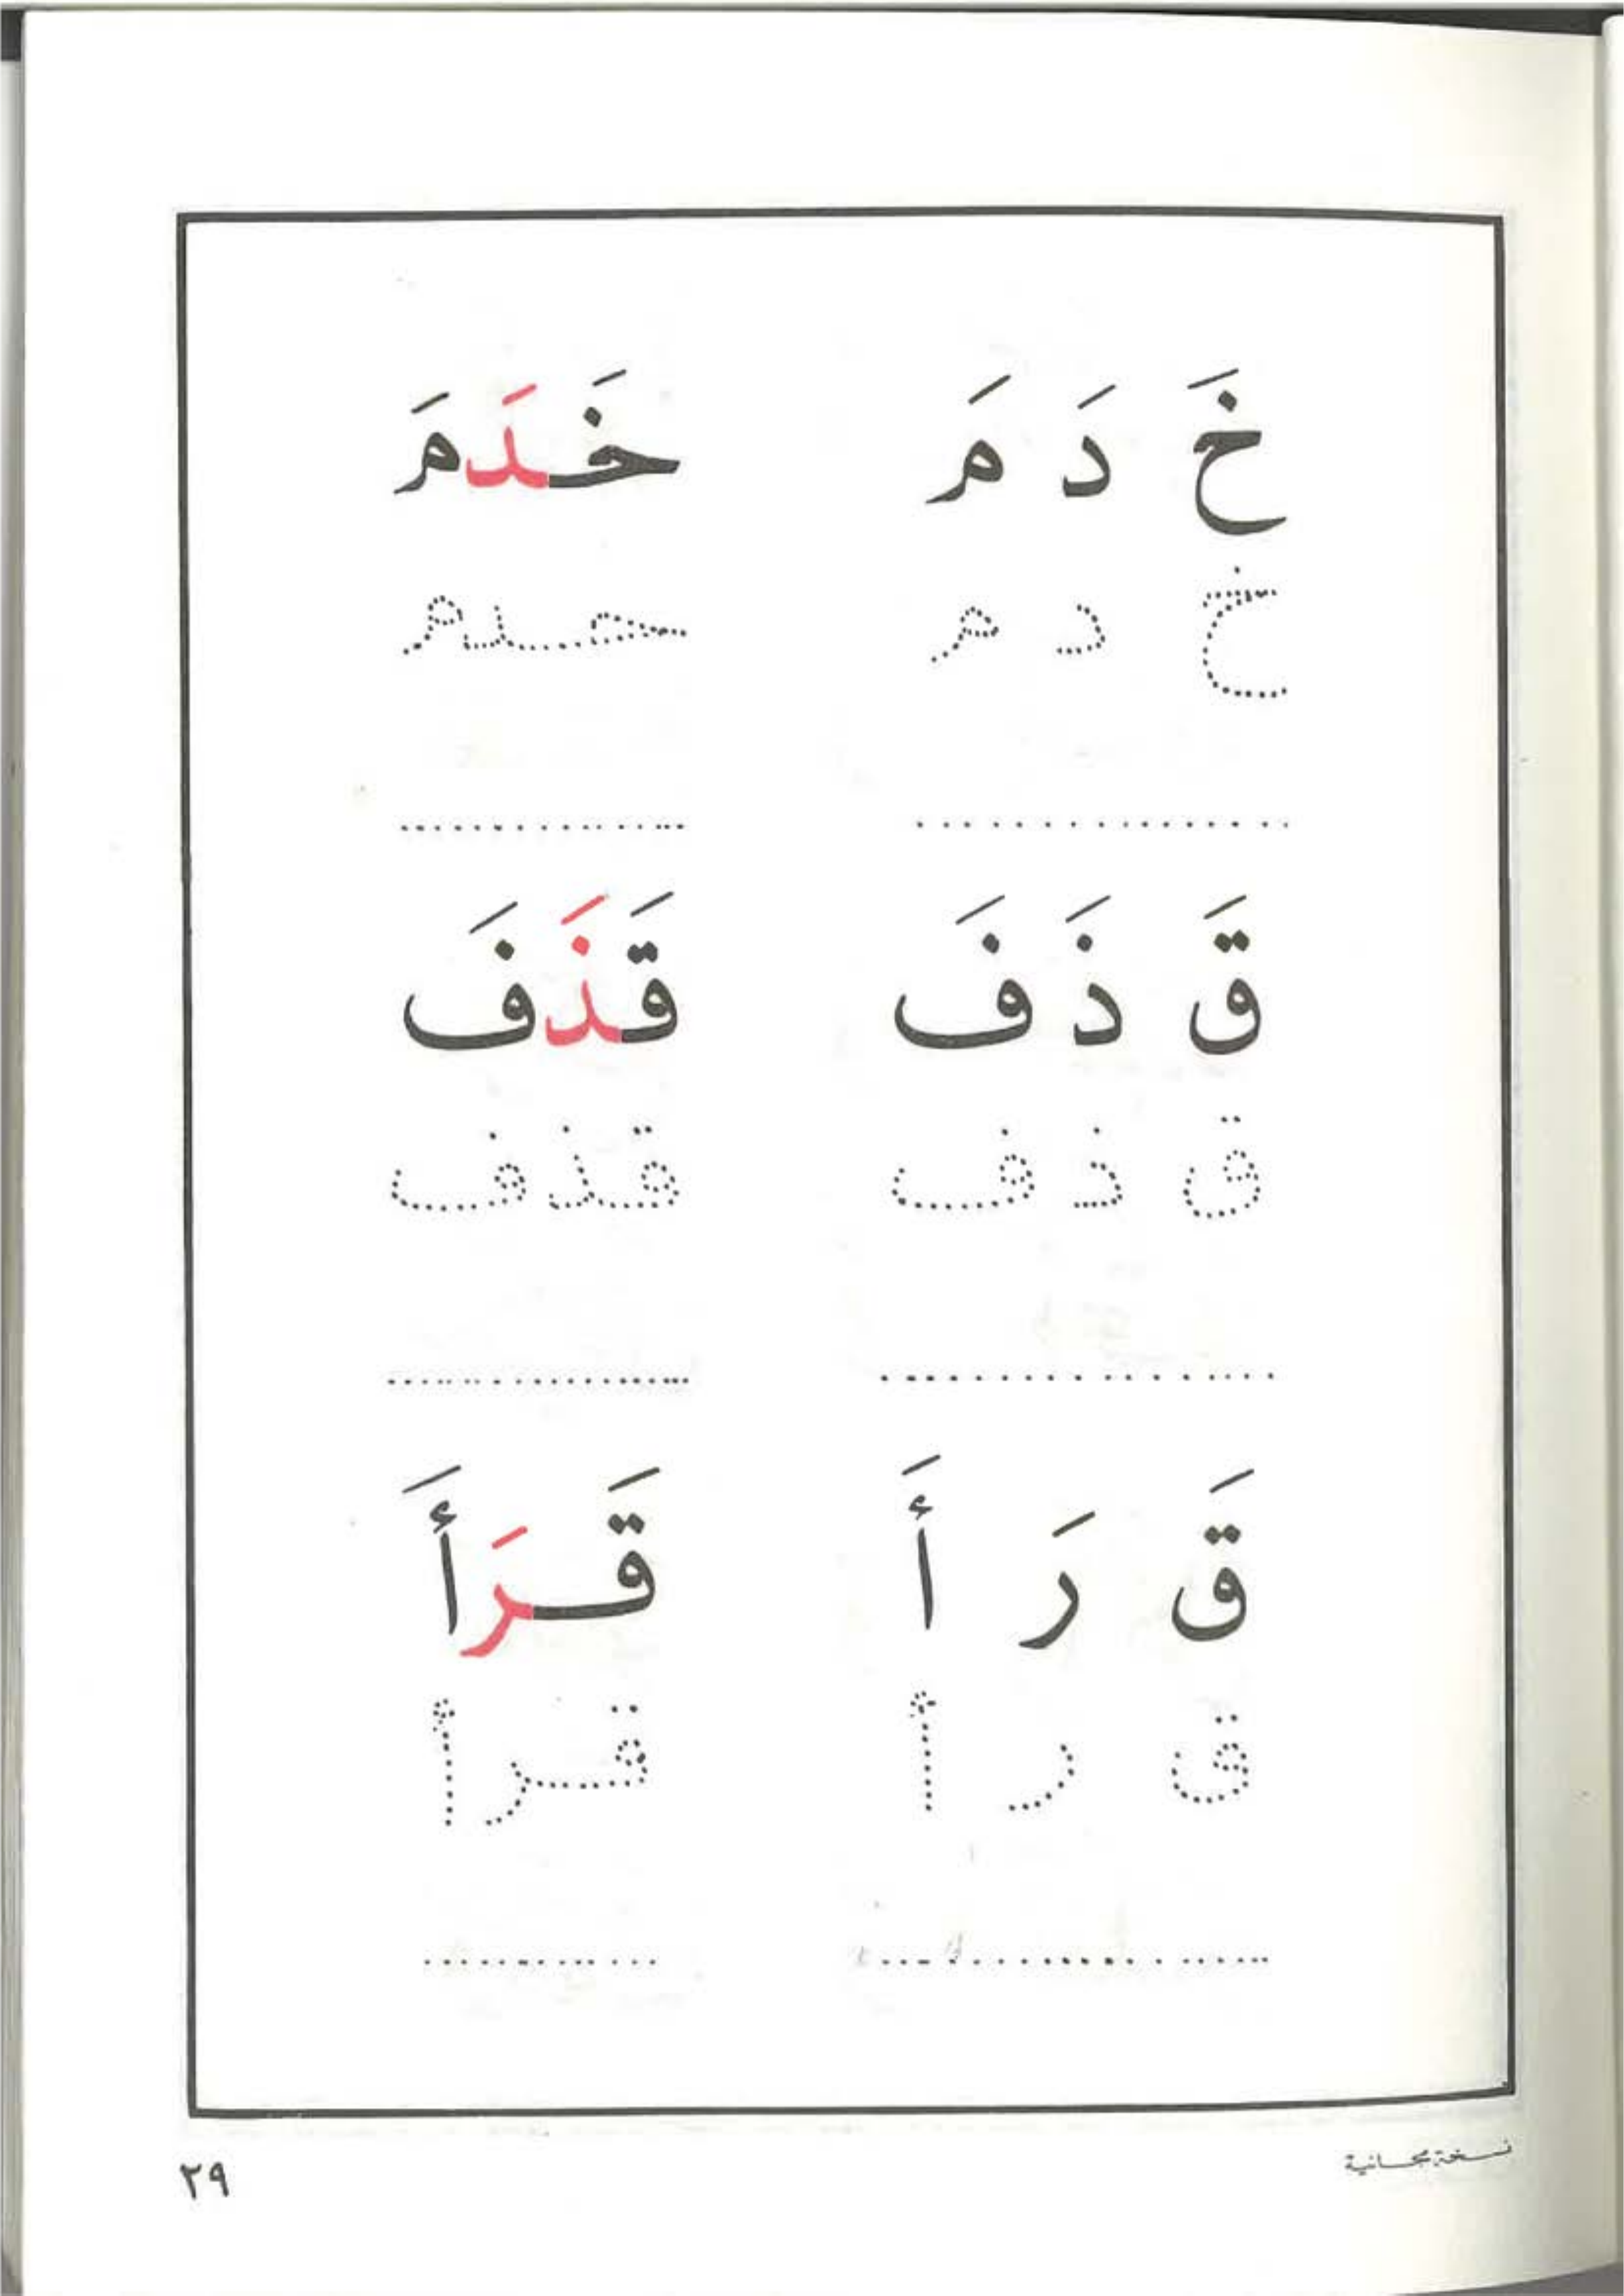 خَ دَ مَ خَدَمَ
خ د م حدم
قَ ذَ فَ قَذَفَ
ق ذ ف قذف
قَ رَ أَ قَرَأَ
ق ر أ قرأ
نسخة مجانية
٢٩